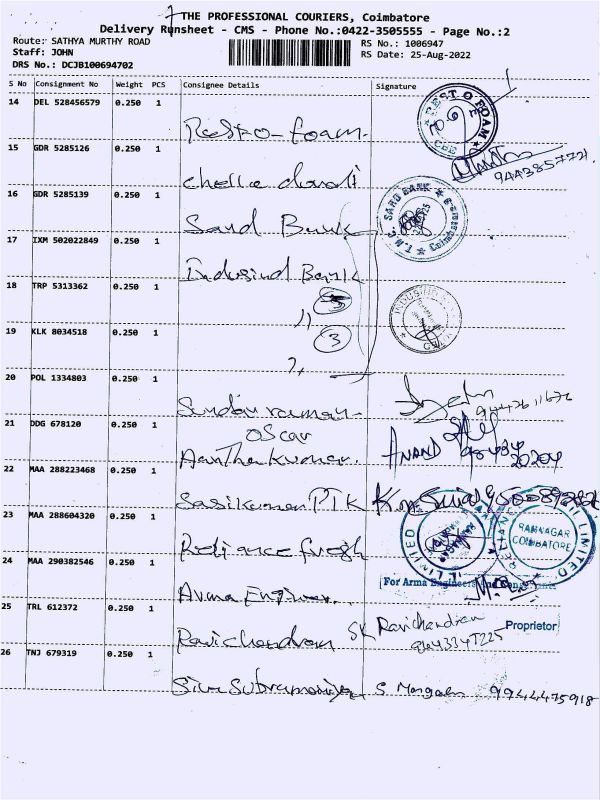 THE PROFESSIONAL COURIERS, Coimbatore
Delivery Runsheet - CMS - Phone No.:0422-3505555 - Page No.:2
Route: SATHYA MURTHY ROAD
RS No.: 1006947
Staff: JOHN
RS Date: 25-Aug-2022
DRS No.: DCJB100694702
S No Consignment No Weight PCS Consignee Details Signature
14 DEL 528456579 0.250 1
Rest-O-foam.
REST O FOAM CBE
15 GDR 5285126 0.250 1
16 GDR 5285139 0.250 1
Sard Bank
SARD BANK
17 IXM 502022849 0.250 1
Indusind Bank
18 TRP 5313362 0.250 1
"
19 KLK 8034518 0.250 1
3
"
20 POL 1334803 0.250 1
Sundar raman
21 DDG 678120 0.250 1
Oscar
Aanthakumar. ANAND
22 MAA 288223468 0.250 1
Sasikumar PTK
23 MAA 288604320 0.250 1
Reliance fresh
RAMNAGAR COIMBATORE
24 MAA 290382546 0.250 1
For Arma Engineers
Arma Engineer.
25 TRL 612372 0.250 1
Proprietor
Ravichandran SK Ravichandran
26 TNJ 679319 0.250 1
Siva Subramaniyan S. Murgan 9944475918